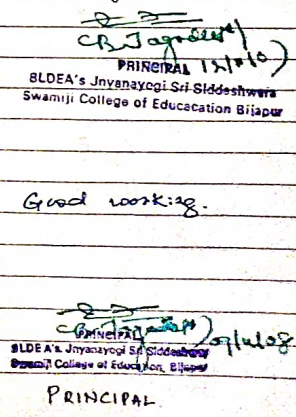 (B. Jagadeesh)
PRINCIPAL
BLDEA's Jnyanayogi Sri Siddeshwara
Swamiji College of Educacation Bijapur
Good working.
PRINCIPAL
BLDEA's Jnyanayogi Sri Siddeshwar
Swamiji College of Education, Bijapur
PRINCIPAL